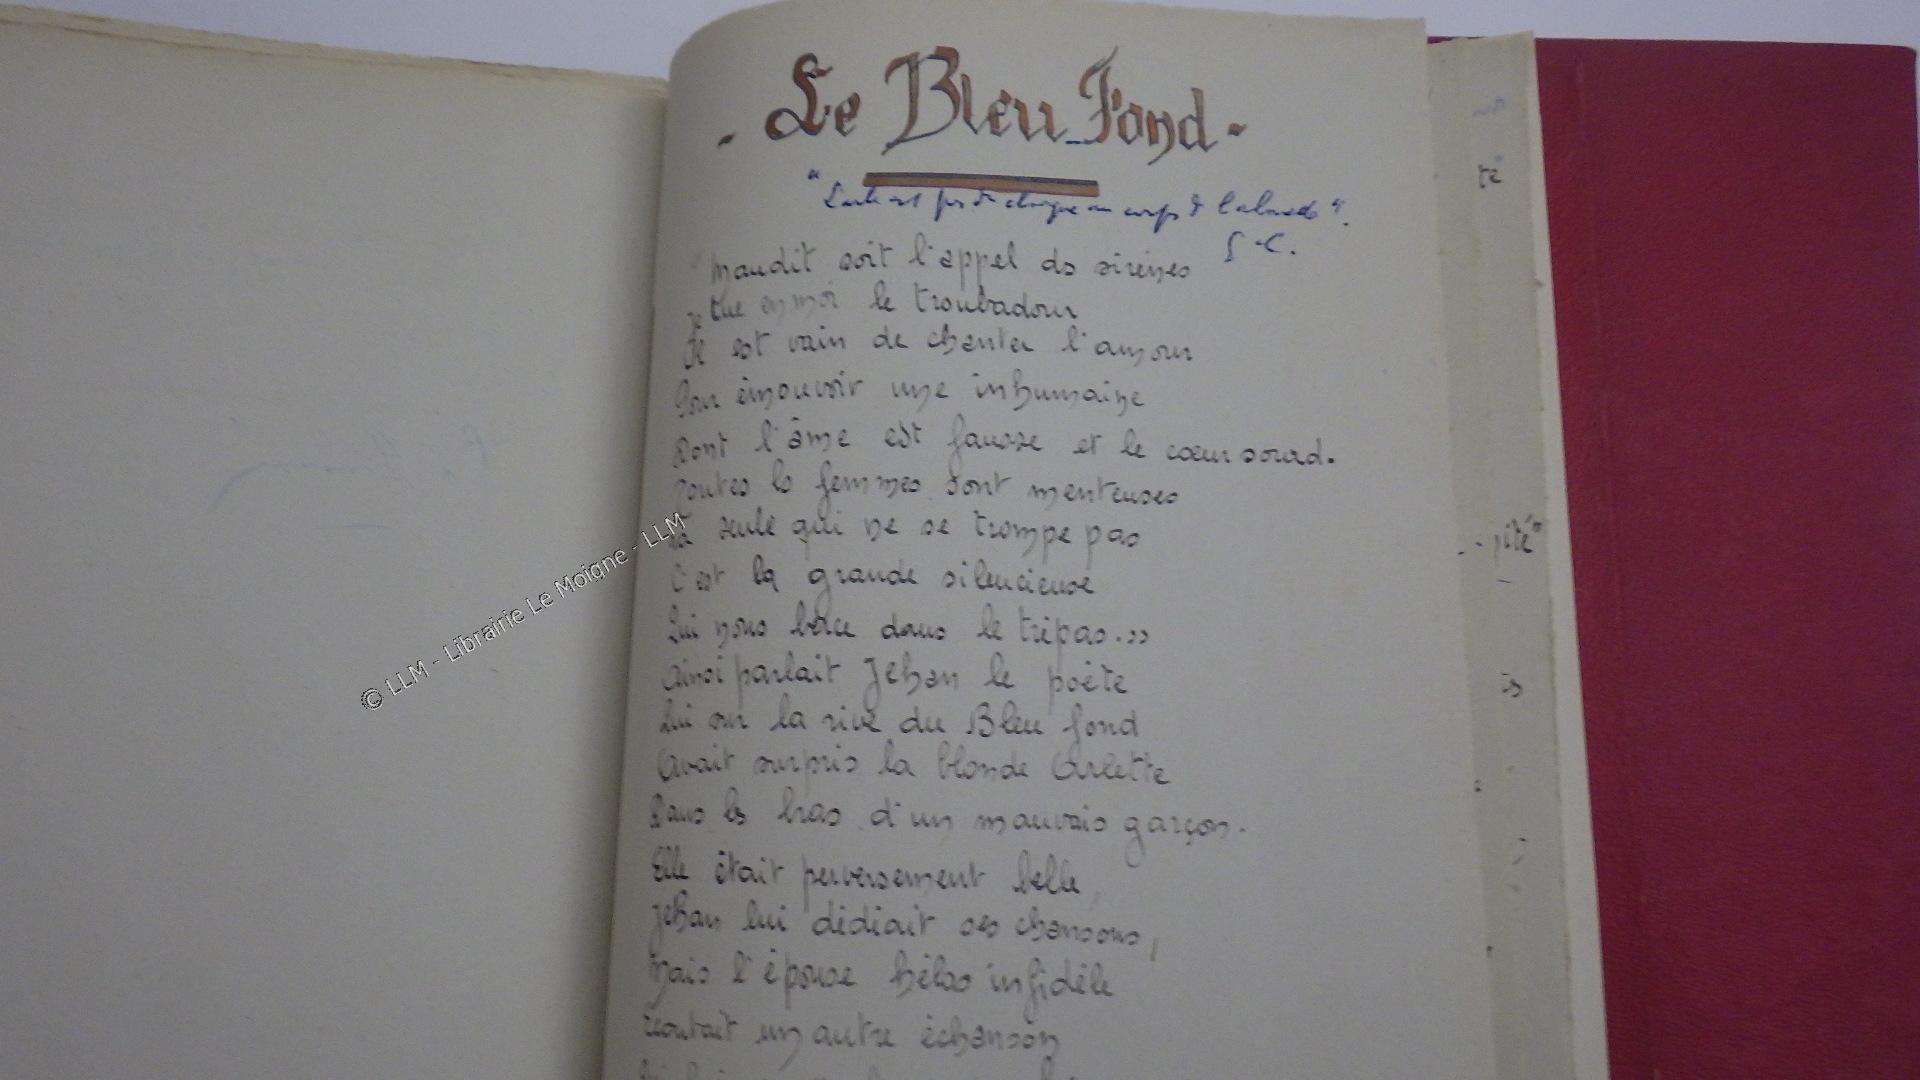 - Le Bleu Fond -
au corps
G. C.
"Maudit soit l'appel des sirènes
Je tue en moi le troubadour
Il est vain de chanter l'amour
Pour émouvoir une inhumaine
Dont l'âme est fausse et le cœur sourd.
Toutes les femmes sont menteuses
La seule qui ne se trompe pas
C'est la grande silencieuse
Qui nous berce dans le trépas."
Ainsi parlait Jehan le poète
Qui sur la rive du Bleu fond
Avait surpris la blonde Arlette
Dans les bras d'un mauvais garçon.
Elle était perversement belle,
Jehan lui dédiait ses chansons,
Mais l'épouse hélas infidèle
écoutait un autre échanson
té
is
© LLM - Librairie Le Moigne - LLM